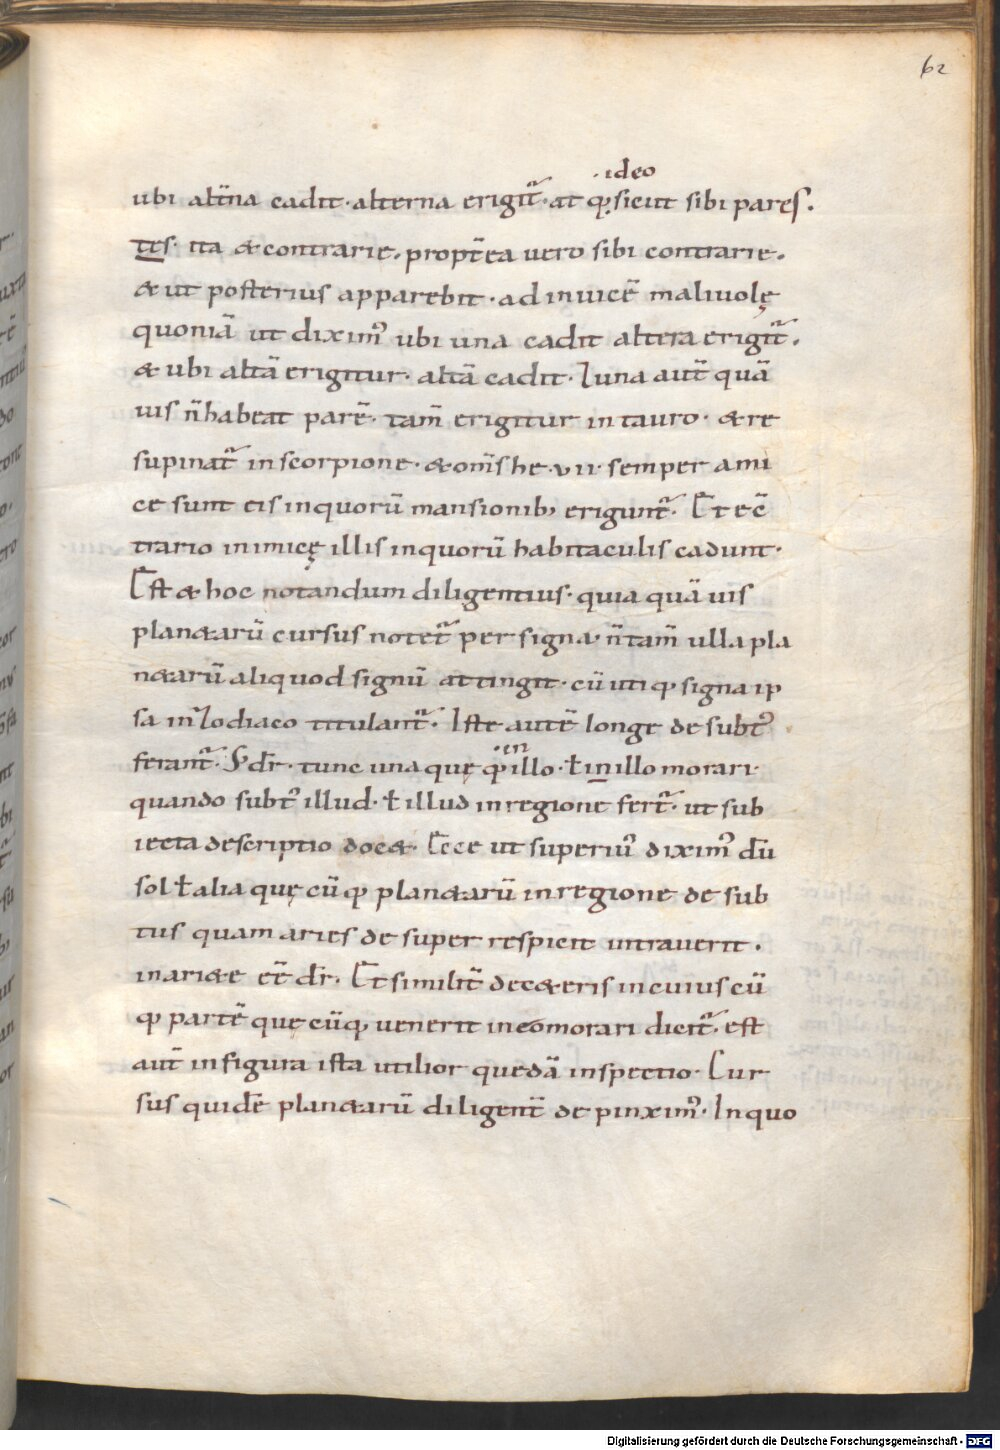 62
·ideo
ubi alt̄na cadit· alterna erigit̄· at qꝫ sicut sibi pares.
tes· ita & contrarie. propt̄ea vero sibi contrarie.
& ut posterius apparebit· ad invicē malivolę
quoniā ut diximꝰ ubi una cadit altera erigit̄.
& ubi altā erigitur· altā cadit· Luna aut̄ quā
vis n̄ habeat parē· tam̄ erigitur in tauro· & re
supinat̄ in scorpione· & om̄s he·vii· semper ami
ce sunt eis in quorū mansionibꝫ erigunt̄. Et e c̄
trario inimicę illis in quorū habitaculis cadunt·
Est & hoc notandum diligentius· quia quā uis
plan&arū cursus notet̄ per signa· n̄ tam̄ ulla pla
n&arū aliquod signū attingit· cū uti ꝙ signa ip
sa in zodiaco titulant̄. Iste autē longe de subtꝰ
ferant̄· Sꝫ dr̄· tunc una quę ꝙ illo· ł in illo morari·
·en
quando subtꝰ illud· ł illud in regione fert̄· ut sub
iecta descriptio doc&· Ecce ut superiuꝰ diximꝰ dū
sol ł alia quę cū ꝙ plan&arū in regione de sub
tus quam aries de super respicit intraverit.
in ari&e eē dr̄. Et similit̄ de c&eris in cuius cū
ꝙ partē quę cūꝙ venerit in eo morari dicit̄· est
aut̄ in figura ista utilior quedā inspectio· Cur
sus quidē plan&arū diligent̄ de pinximꝰ· In quo
Digitalisierung gefördert durch die Deutsche Forschungsgemeinschaft - DFG